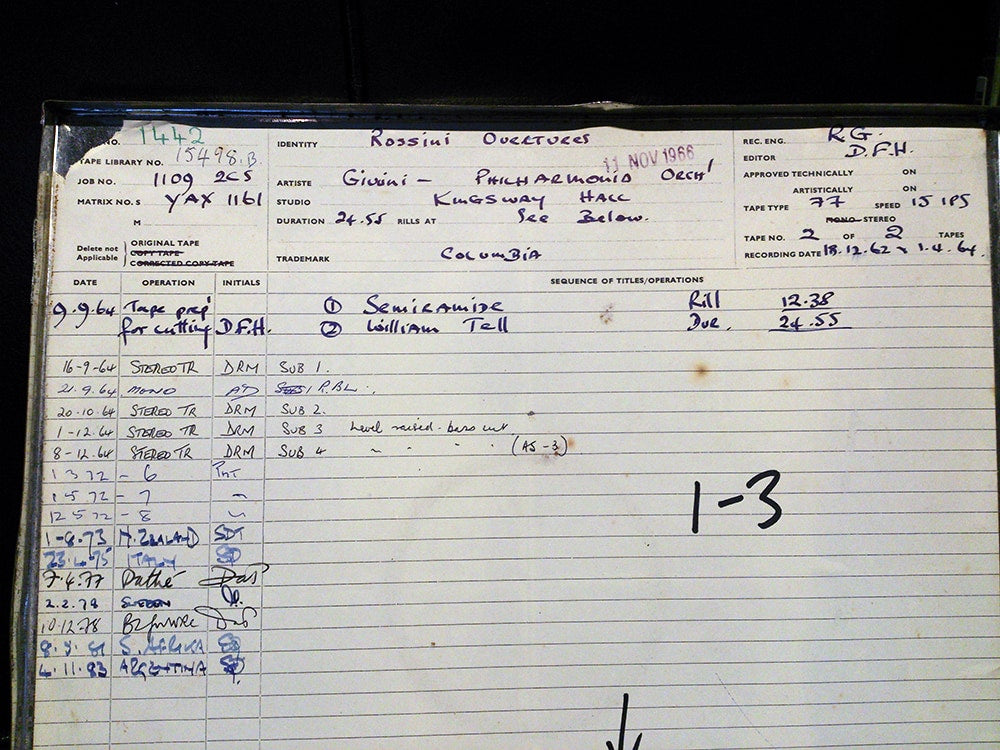 NO. 1442
TAPE LIBRARY NO. 15498.B
JOB NO. 1109 2C5
MATRIX NO. S YAX 1161
M
Delete not Applicable
ORIGINAL TAPE
COPY TAPE
CORRECTED COPY TAPE
IDENTITY Rossini Overtures
11 NOV 1966
ARTISTE Giulini - Philharmonia Orch
STUDIO Kingsway Hall
DURATION 24.55 RILLS AT See Below.
TRADEMARK Columbia
REC. ENG. R.G.
EDITOR D.F.H.
APPROVED TECHNICALLY ON
ARTISTICALLY ON
TAPE TYPE 77 SPEED 15 IPS
MONO STEREO
TAPE NO. 2 OF 2 TAPES
RECORDING DATE 18.12.62 x 1.4.64.
DATE OPERATION INITIALS SEQUENCE OF TITLES/OPERATIONS
9.9.64 Tape prep ① Semiramide Rill 12.38
for cutting D.F.H. ② William Tell Dur. 24.55
16-9-64 STEREO TR DRM SUB 1.
21.9.64 MONO R.BL.
20-10-64 STEREO TR DRM SUB 2.
1-12-64 STEREO TR DRM SUB 3 Level raised - bass cut
8-12-64 STEREO TR DRM SUB 4 " " " (AS-3)
1 3 72 - 6 PMT
1 5 72 - 7 "
12 5 72 - 8 "
1-8-73 N. ZEALAND SDT
ITALY
7.4.77 Pathé
2.2.78 SWEDEN
10.12.78
S. AFRIKA
4.11.83 ARGENTINA
1-3